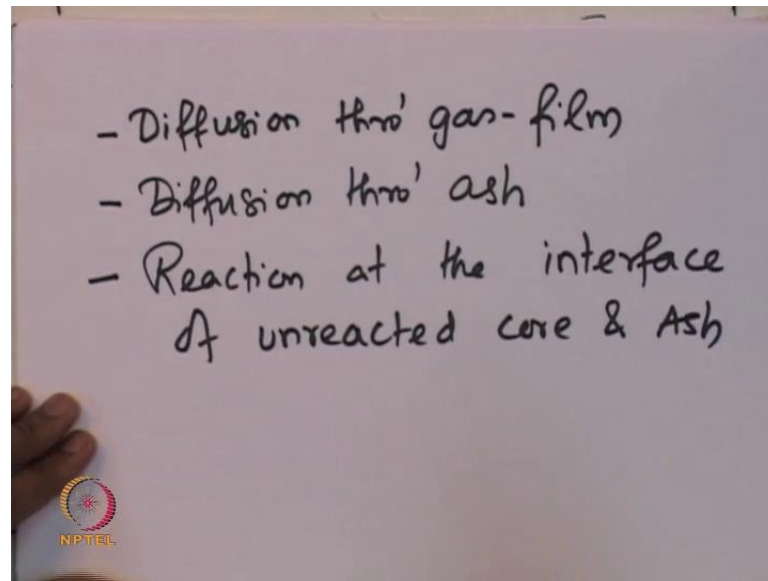 - Diffusion thro' gas-film
- Diffusion thro' ash
- Reaction at the interface
of unreacted core & Ash
NPTEL